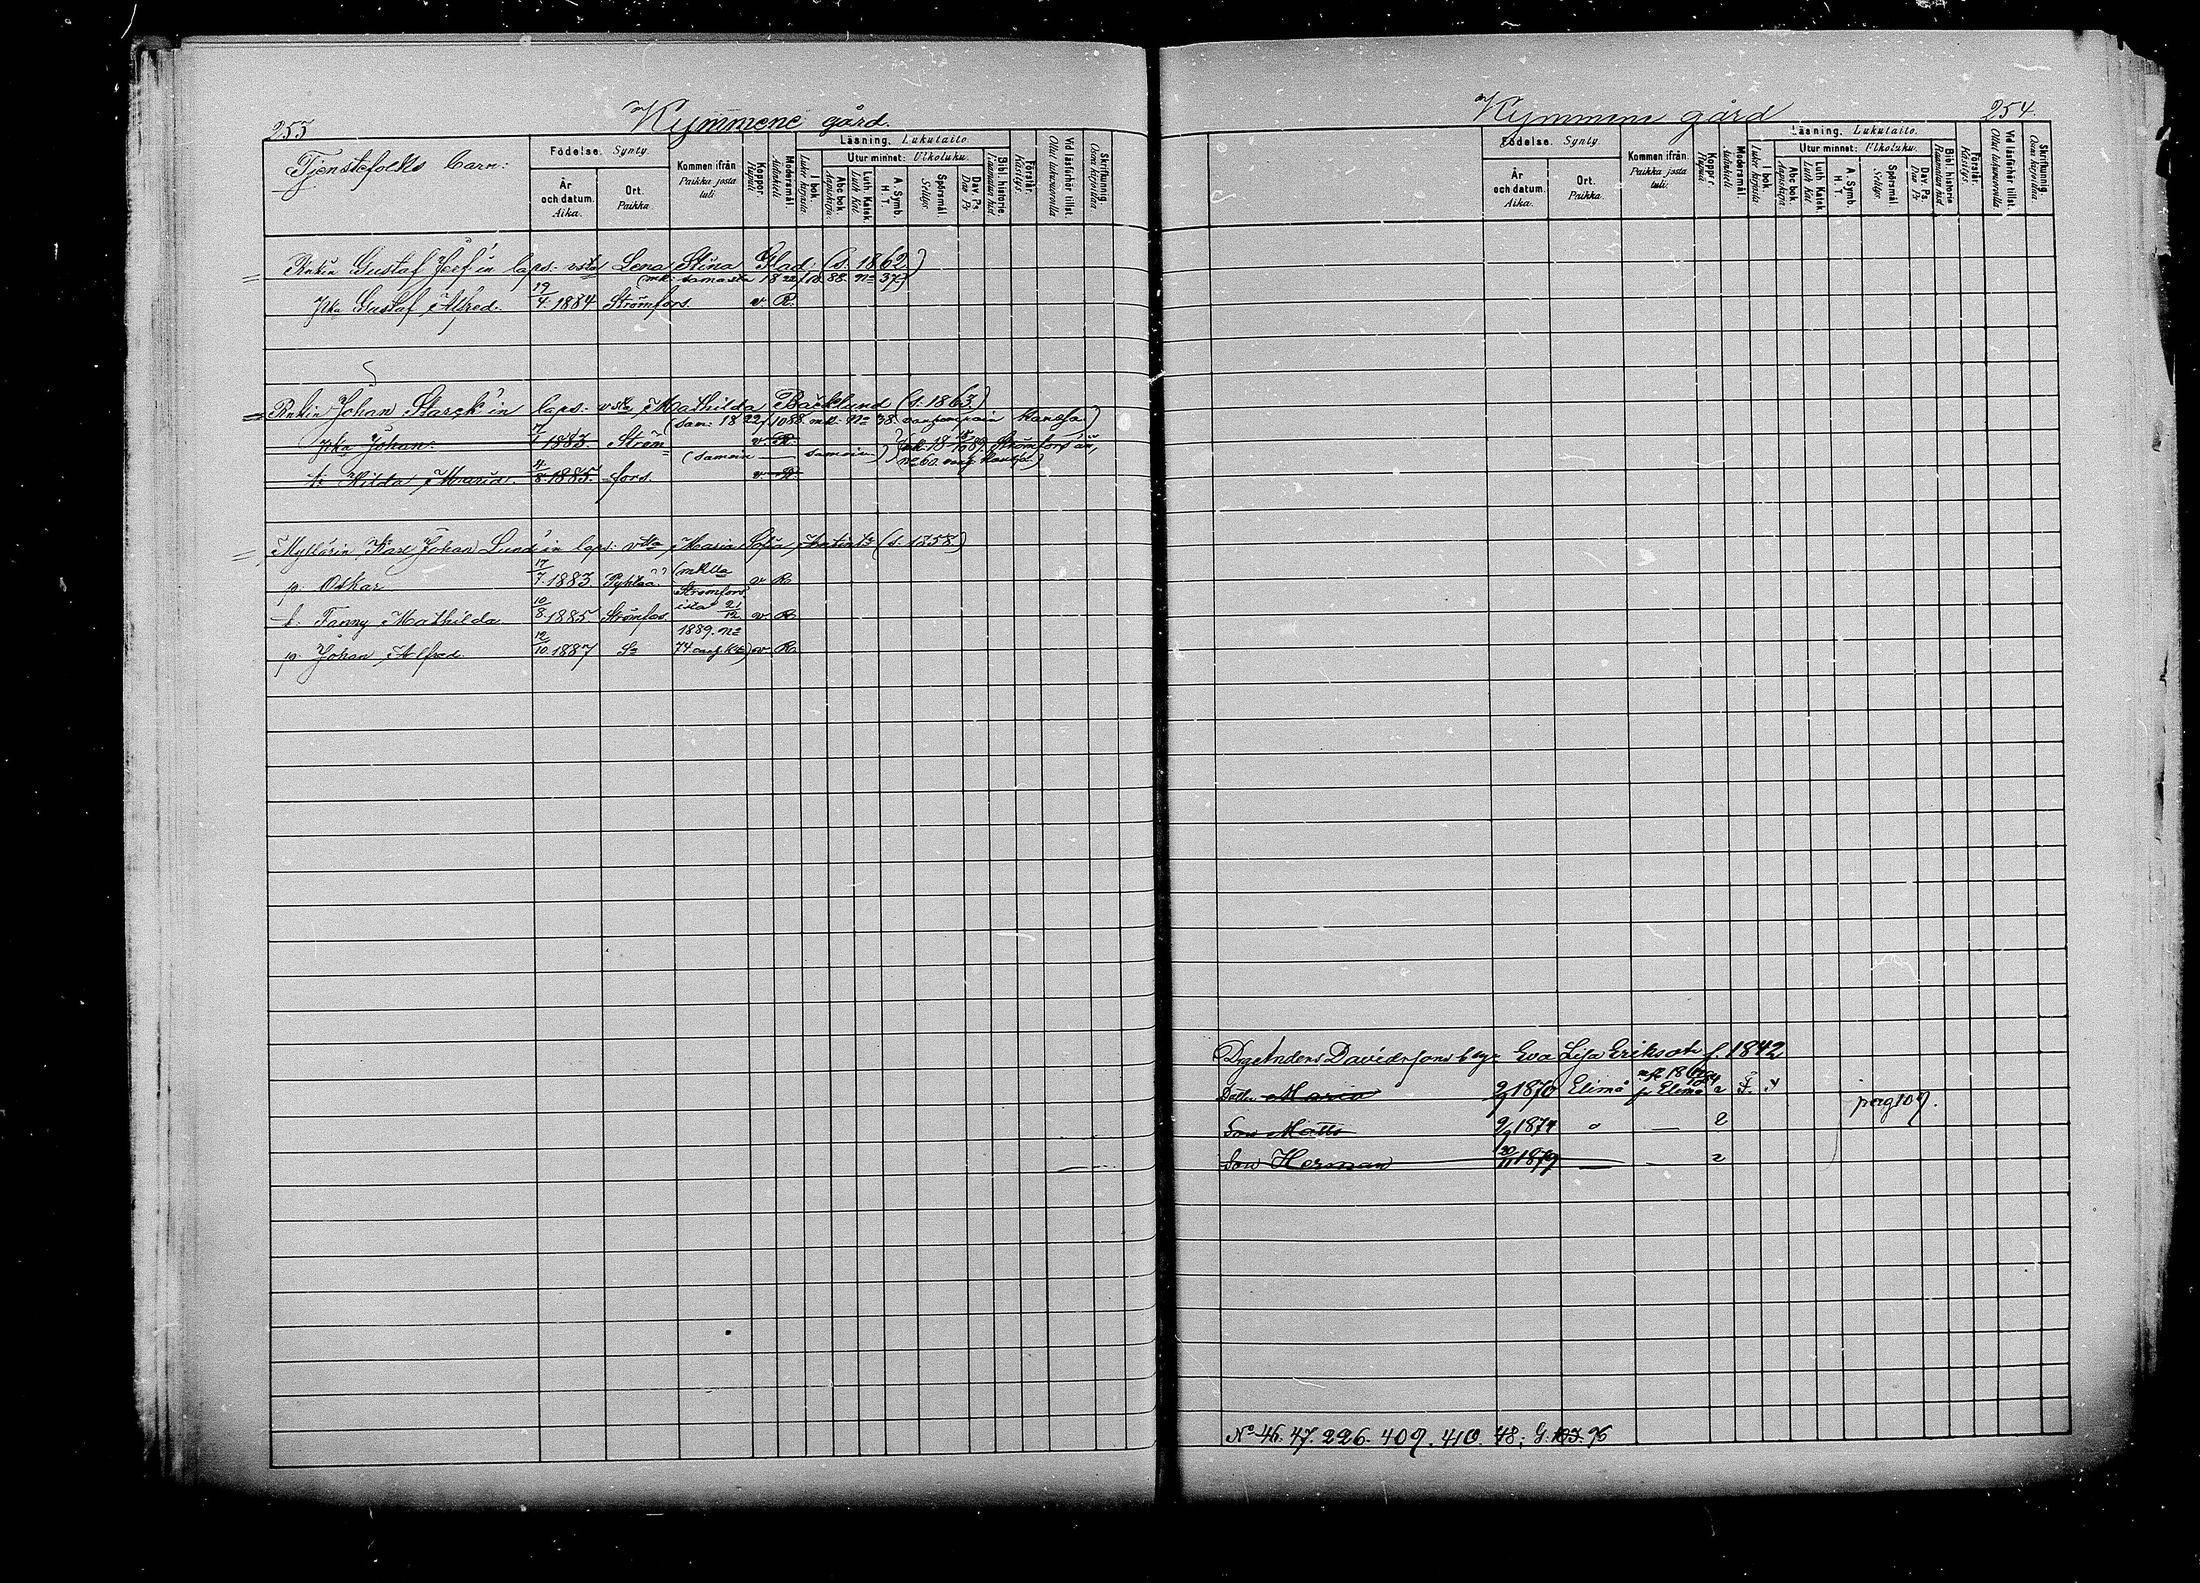 253
Kymmene gård.
Tjenstefolks barn:
Födelse. Synty.
År och datum. Aika.
Ort. Paikka.
Kommen ifrån. Paikka josta tuli.
Koppor. Rupuli
Modersmål. Äidinkieli
Läsning. Lukutaito
I bok. Lukee kirjasta
Utur minnet: Ulkoluku.
Abc bok Aapiskirja.
Luth. Katek. Luth. Kat.
A. Symb. H. T.
Spörsmål. Selitys.
Dav. Ps. Dav. Ps.
Bibl. historie Raamatun hist.
Förstår. Käsitys.
Vid läsförhör tillst. Ollut lukuvuorolla
Skrifkunnig. Osaa kirjoittaa
Gustaf laps: vsta Lena Stina Glad (s. 1862)
(mk. samasta 18 22/10 88. No 37)
Gustaf Alfred. 19/4. 1884 Strömfors. v R.
Johan Starck'in laps: vsta Mathilda Bäcklund (s. 1863)
(sam: 18 22/10 88. mk. No 38. vanhempain kanssa)
Johan. 1883 Ström v R.
(samoin — samoin)
No 60. kanssa)
t: Hilda Maria. 4/8. 1885. =fors. v R.
Myllärin Karl Johan Lund'in laps: vsta Maria Sofia (s. 1858)
p. Oskar 17/7. 1883. Pyhtää (mklla v R.
Strömfors
ista 21/12
t. Fanny Mathilda 10/8. 1885 Strömfors v R.
1889. No
p. Johan Alfred. 12/10. 1887 So 74 v R.
Kymmene gård
254.
Födelse. Synty.
År och datum. Aika.
Ort. Paikka.
Kommen ifrån. Paikka josta tuli.
Koppor. Rupuli
Modersmål. Äidinkieli
Läsning. Lukutaito.
I bok. Lukee kirjasta
Utur minnet: Ulkoluku.
Abc bok Aapiskirja.
Luth. Katek. Luth. Kat.
A. Symb. H. T.
Spörsmål. Selitys.
Dav. Ps. Dav. Ps.
Bibl. historie Raamatun hist.
Förstår. Käsitys.
Vid läsförhör tillst. Ollut lukuvuorolla
Skrifkunnig. Osaa kirjoittaa
Anders Davidssons Eva Lisa f. 1842
Maria 2/9 1870 Elimä fr Elimä
pag 109.
Son Matts 2/9 1874
Son Herman 20/11 1879
No 46. 47. 226. 409. 410. 48; G. 103. 96